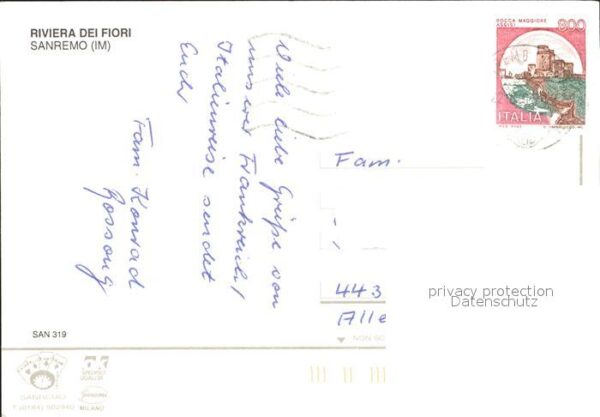 RIVIERA DEI FIORI
SANREMO (IM)
ROCCA MAGGIORE
ASSISI
800
ITALIA
Viele liebe Grüße von
unserer Frankreich/
Italienreise sendet
Euch
Fam. Konrad
Fam.
443
Alle
privacy protection
Datenschutz
SAN 319
NON SC
SANREMO
MILANO